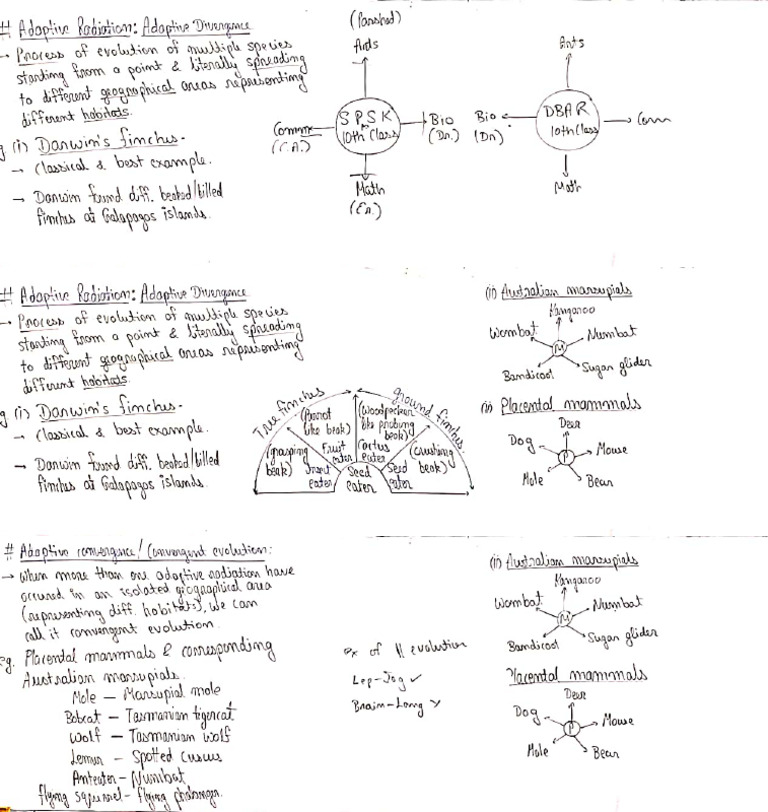 # Adaptive Radiation: Adaptive Divergence
→ Process of evolution of multiple species
starting from a point & literally spreading
to different geographical areas representing
different habitats.
g (i) Darwin's finches-
→ Classical & best example.
→ Darwin found diff. beaked/billed
finches at Galapagos islands.
Arts
SPSK
10th Class
Comm
(C.A.)
Bio
(Dr.)
Math
(Er.)
Arts
DBAR
10th Class
Bio
(Dr.)
Com
Math
# Adaptive Radiation: Adaptive Divergence
→ Process of evolution of multiple species
starting from a point & literally spreading
to different geographical areas representing
different habitats.
g (i) Darwin's finches-
→ Classical & best example.
→ Darwin found diff. beaked/billed
finches at Galapagos islands.
True finches
ground finches
(Parrot
like beak)
(woodpecker
like probing
beak)
(grasping
beak)
Fruit
eater
Cactus
eater
(crushing
beak)
eater
Seed
eater
Seed
eater
(ii) Australian marsupials
Kangaroo
Wombat
Numbat
M
Bandicoot
Sugar glider
(ii) Placental mammals
Deer
Dog
P
Mouse
Mole
Bear
# Adaptive convergence/Convergent evolution:
→ When more than one adaptive radiation have
occured in an isolated geographical area
(representing diff. habitats), we can
call it convergent evolution.
eg. Placental mammals & corresponding
Australian marsupials.
Mole — Marsupial mole
Bobcat — Tasmanian tigercat
Wolf — Tasmanian wolf
Lemur — Spotted cuscus
Anteater — Numbat
flying squirrel - flying phalanger.
ex of || evolution
Brain-Lang
(ii) Australian marsupials
Kangaroo
Wombat
Numbat
M
Bandicoot
Sugar glider
Placental mammals
Deer
Dog
P
Mouse
Mole
Bear